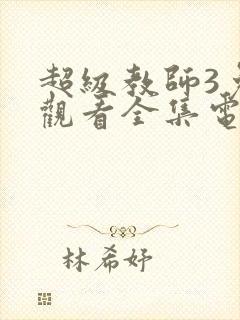 超級教師3
觀看全集電
林希妤